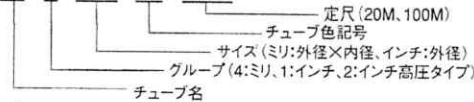 定尺(20M、100M)
チューブ色記号
サイズ(ミリ:外径×内径、インチ:外径)
グループ(4:ミリ、1:インチ、2:インチ高圧タイプ)
チューブ名